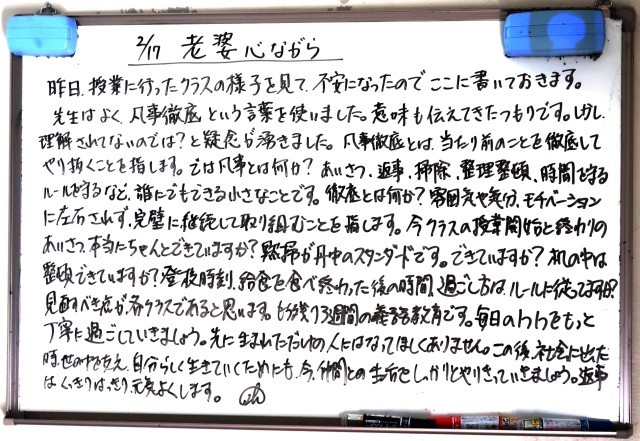 2/17 老婆心ながら
昨日、授業に行ったクラスの様子を見て、不安になったのでここに書いておきます。
先生はよく、凡事徹底という言葉を使いました。意味も伝えてきたつもりです。しかし、
理解されてないのでは?と疑念が湧きました。凡事徹底とは、当たり前のことを徹底して
やり抜くことを指します。では凡事とは何か?あいさつ、返事、掃除、整理整頓、時間を守る
ルールを守るなど、誰にでもできる小さなことです。徹底とは何か?雰囲気や気分、モチベーション
に左右されず、完璧に継続して取り組むことを指します。今クラスの授業開始と終わりの
あいさつ、本当にちゃんとできていますか?黙掃が丹中のスタンダードです。できていますか?机の中は
整頓できていますか?登校時刻、給食を食べ終わった後の時間、過ごし方はルールに従ってますか?
見直すべき点が各クラスであると思います。もう残り3週間の義務教育です。毎日の1日1日をもっと
丁寧に過ごしていきましょう。先に生まれただけの人にはなってほしくありません。この後、社会に出た
時、世の中を支え、自分らしく生きていくためにも、今、仲間との生活をしっかりとやりきっていきましょう。返事
はくっきりはっきり元気よくします。